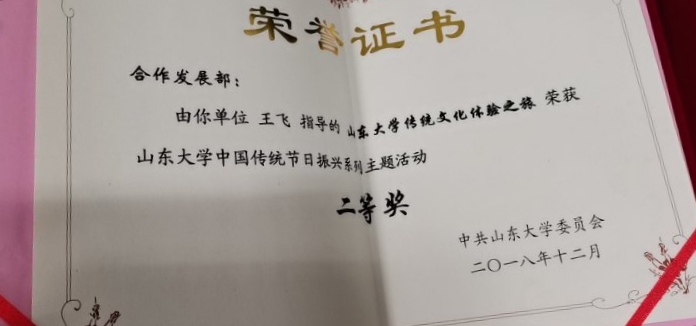 荣誉证书
合作发展部：
由你单位 王飞 指导的 山东大学传统文化体验之旅 荣获
山东大学中国传统节日振兴系列主题活动
二等奖
中共山东大学委员会
二〇一八年十二月